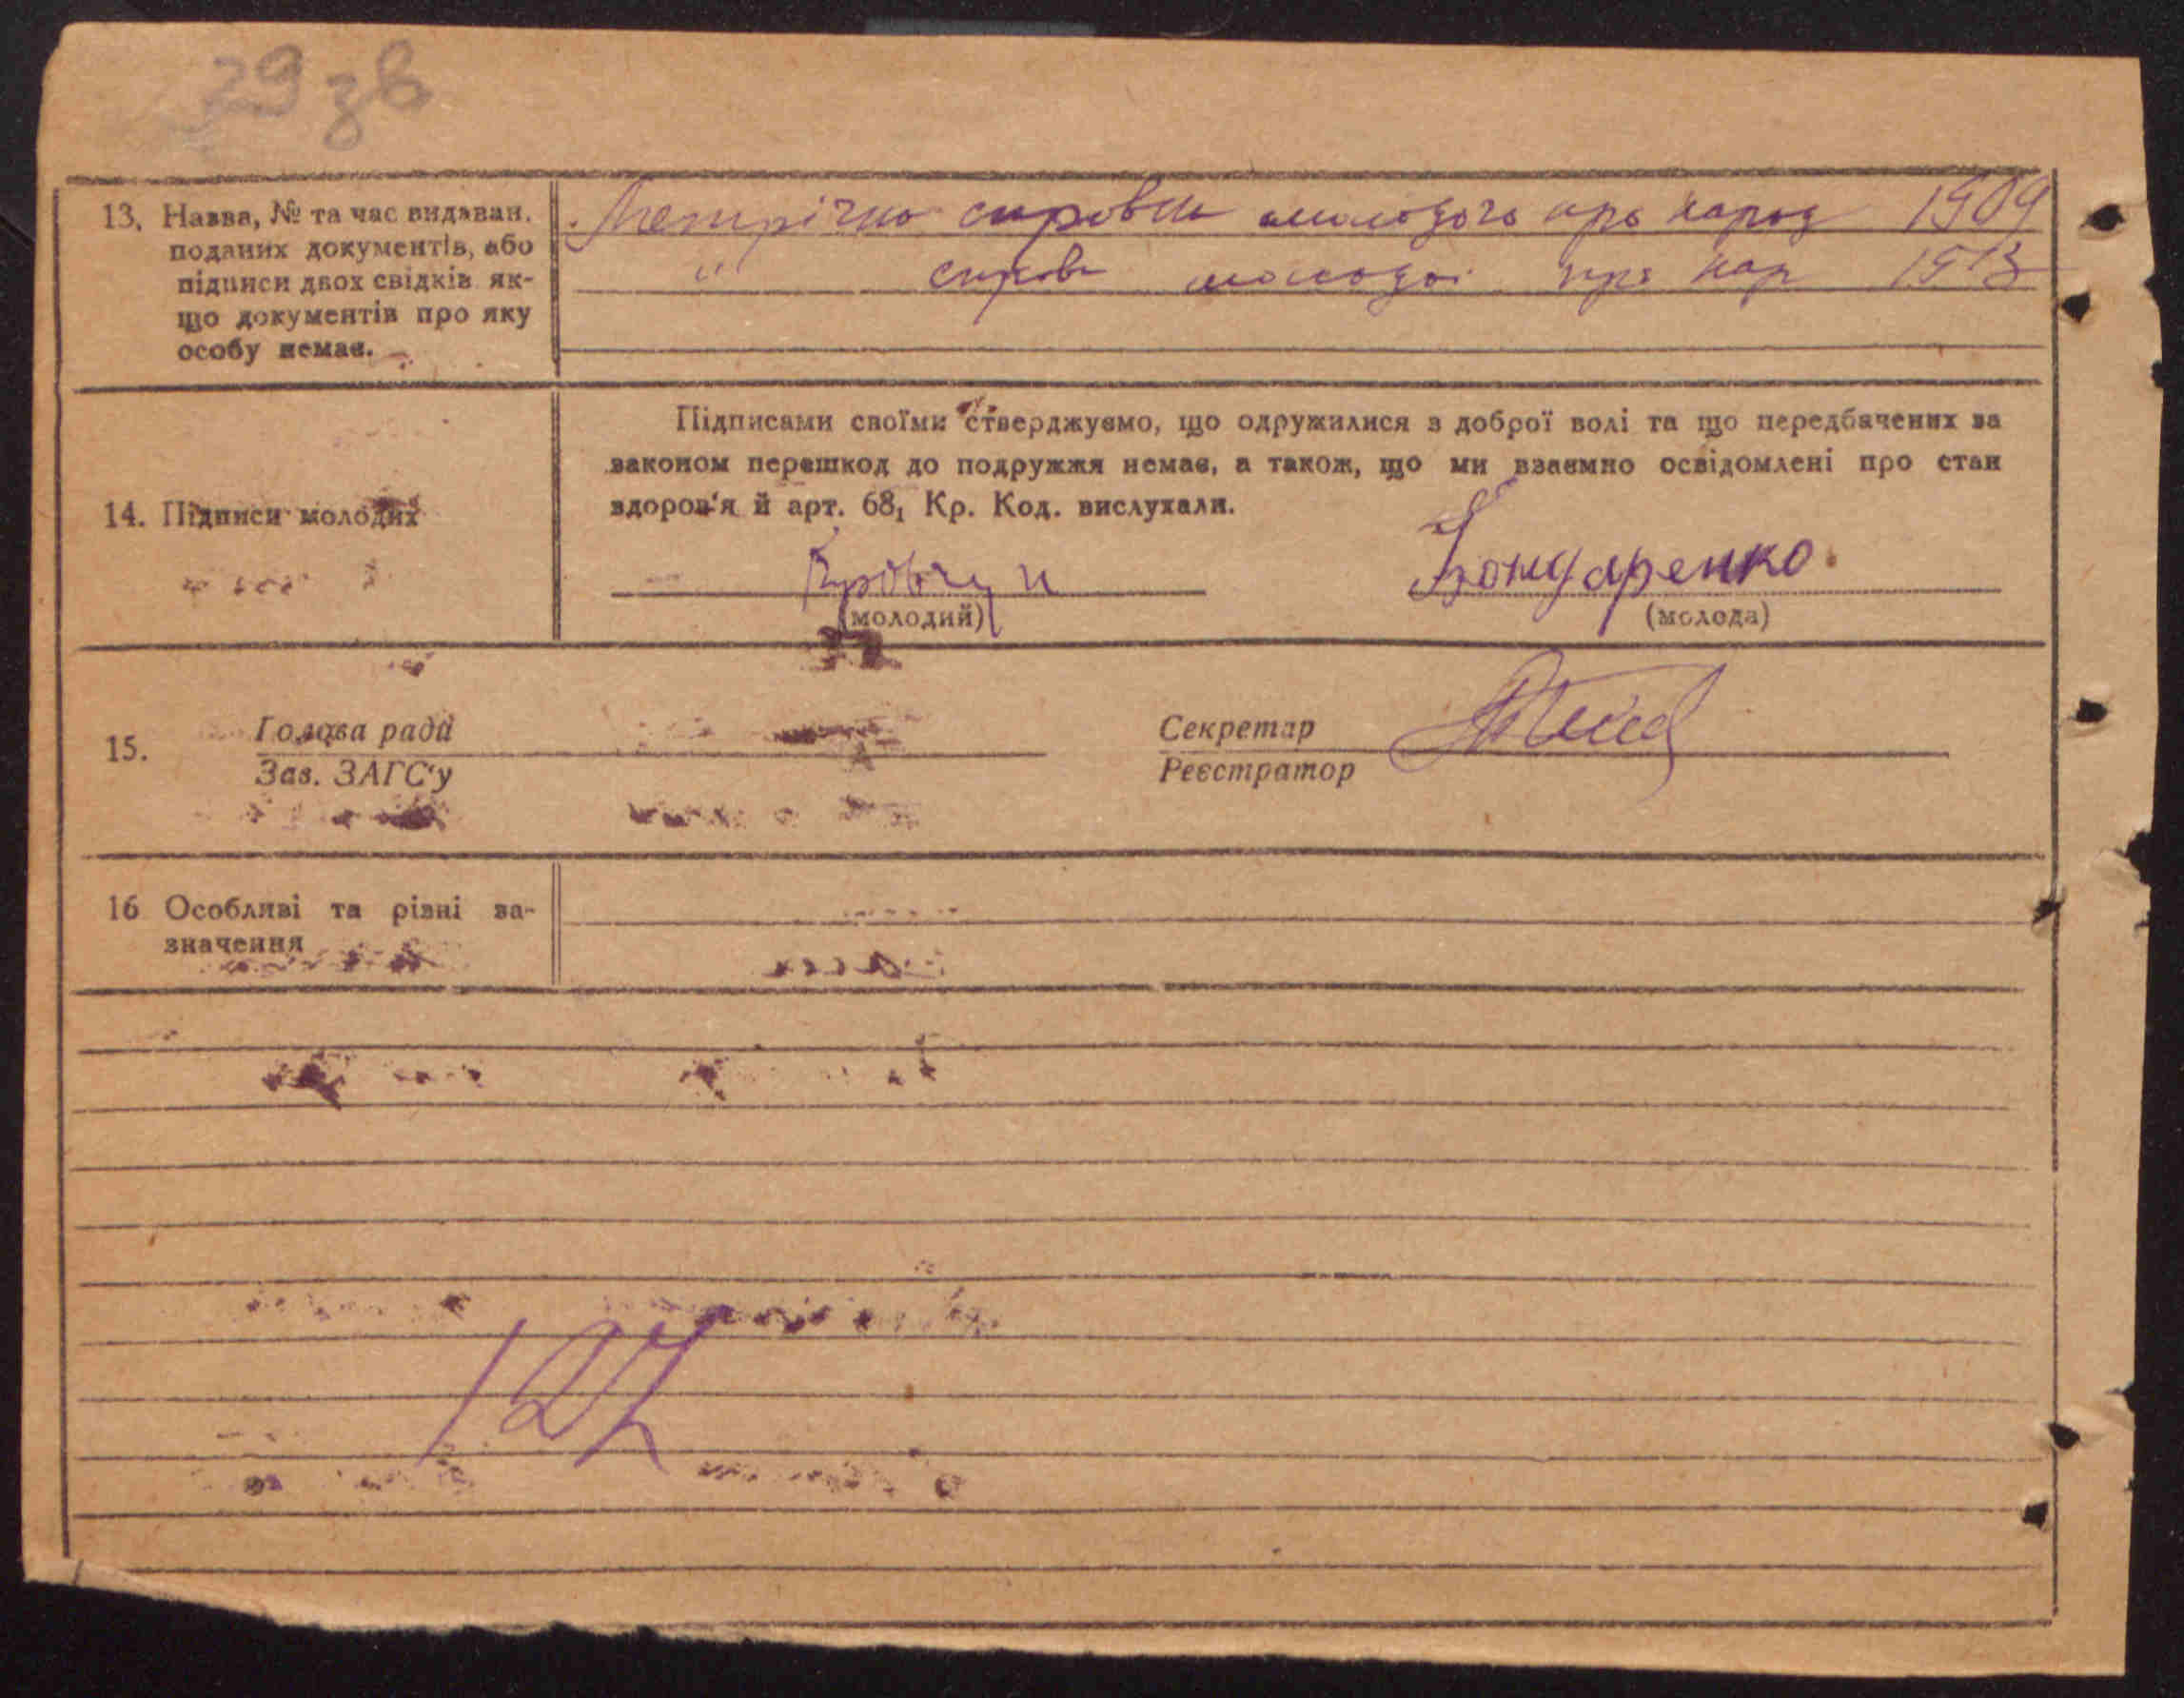 29 зв
13. Назва, № та час видаван.
поданих документів, або
підписи двох свідків як-
що документів про яку
особу немає.
Метрічна молодого про народ 1909
" молодої про нар 1913
Підписами своїми стверджуємо, що одружилися з доброї волі та що передбачених за
законом перешкод до подружжя немає, а також, що ми взаємно освідомлені про стан
здоров'я й арт. 68₁ Кр. Код. вислухали.
14. Підписи молодих
Бондаренко
(молодий)
(молода)
15.
Голова ради
Зав. ЗАГС'у
Секретар
Реєстратор
16 Особливі та різні за-
значення
127